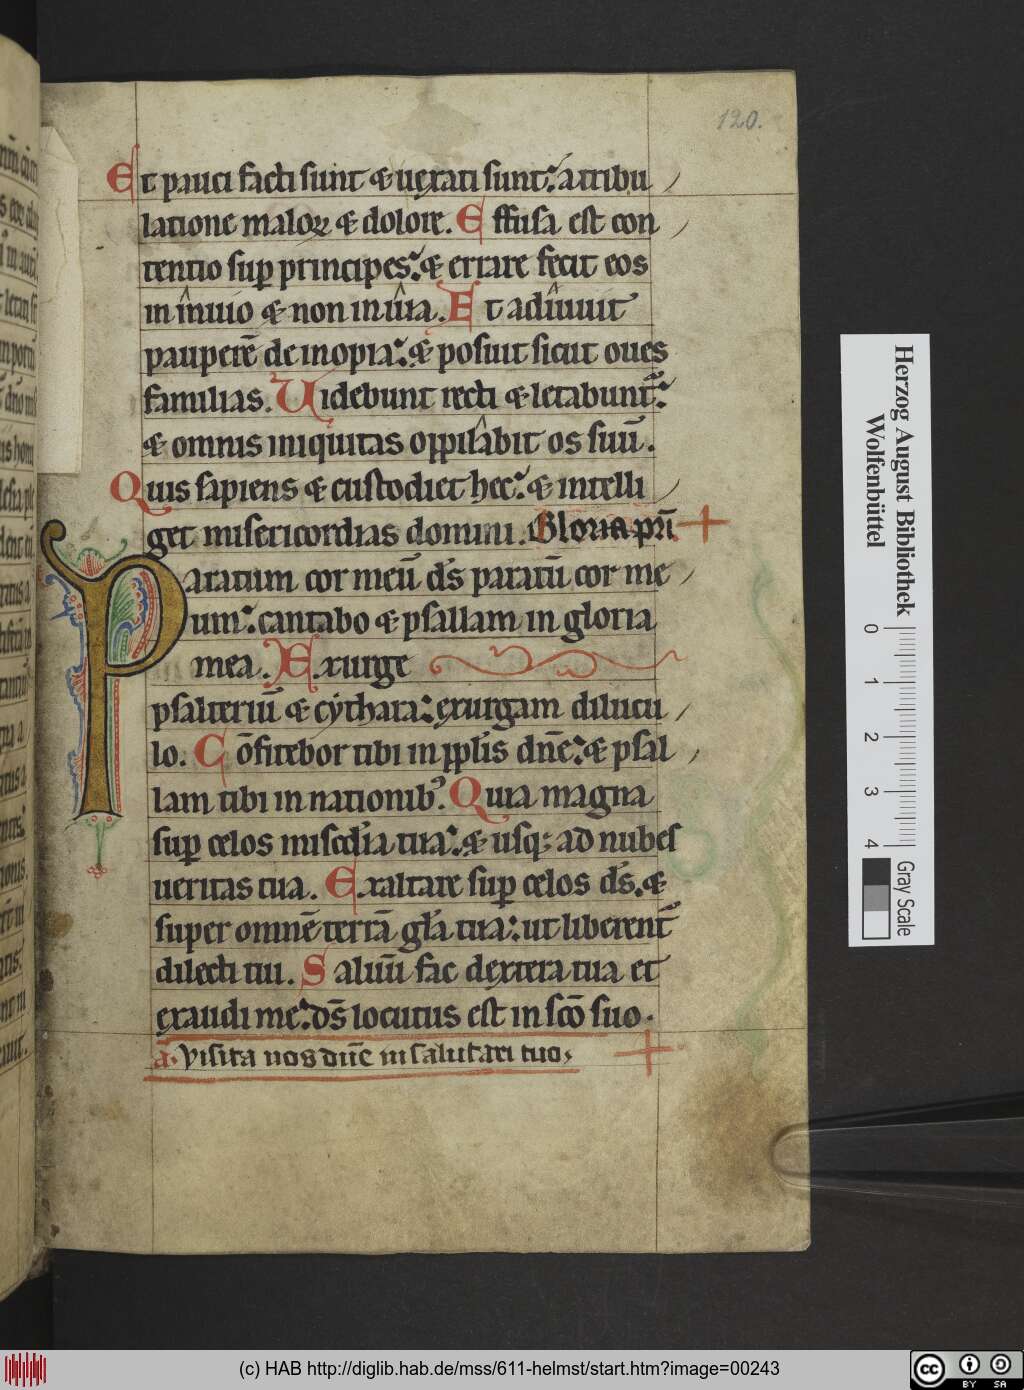 120.
Et pauci facti sunt & uexati sunt: a tribu
latione maloꝝ & dolore. Effusa est con
tentio suꝑ principes: & errare fecit eos
in inuio & non in uia. Et adiuuit
pauperē de inopia: & posuit sicut oues
familias. Uidebunt recti & letabunt̄:
& omnis iniquitas oppilabit os suū.
Quis sapiens & custodiet hec: & intelli
get misericordias domini. Gloria pr̄i
Paratum cor meū ds̄ paratū cor me
um: cantabo & psallam in gloria
mea. Exurge
psalteriū & cythara: exurgam dilucu
lo. Cōfitebor tibi in ꝑplis dn̄e: & psal
lam tibi in nationibꝰ. Quia magna
suꝑ celos misc̄dia tua: & usqꝫ ad nubes
ueritas tua. Exaltare suꝑ celos ds̄. &
super omnē terrā gl̄a tua: ut liberent̄
dilecti tui. Saluū fac dextera tua et
exaudi me: ds̄ locutus est in sc̄o suo.
a. Visita nos dn̄e in salutari tuo,
Herzog August Bibliothek
Wolfenbüttel
0 1 2 3 4
Gray Scale
(c) HAB http://diglib.hab.de/mss/611-helmst/start.htm?image=00243
cc BY SA